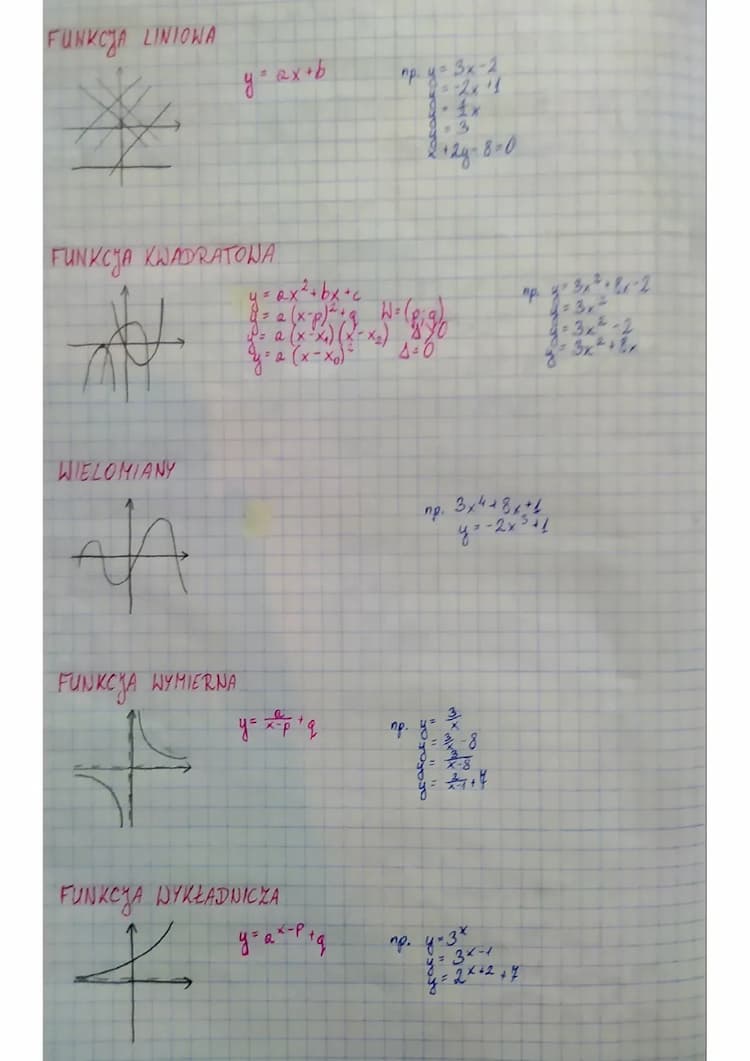 FUNKCJA LINIOWA
y = ax+b
np. y = 3x-2
y = -2x+1
y = x
y = 3
2+2y-8=0
FUNKCJA KWADRATOWA
y = ax²+bx+c
y = a(x-p)²+q W=(p;q)
y = a(x-x₁)(x-x₂) Δ>0
y = a(x-x₀)² Δ=0
np. y = 3x²+8x-2
y = 3x²
y = 3x²-2
y = 3x²+8x
WIELOMIANY
np. 3x⁴+8x+1
y = -2x³+1
FUNKCJA WYMIERNA
y = a/(x-p) + q
np. y = 3/x
y = 3/x - 8
y = 3/(x-8)
y = 3/(x-1) + 7
FUNKCJA WYKŁADNICZA
y = a^(x-p) + q
np. y = 3^x
y = 3^(x-1)
y = 2^(x+2) + 7